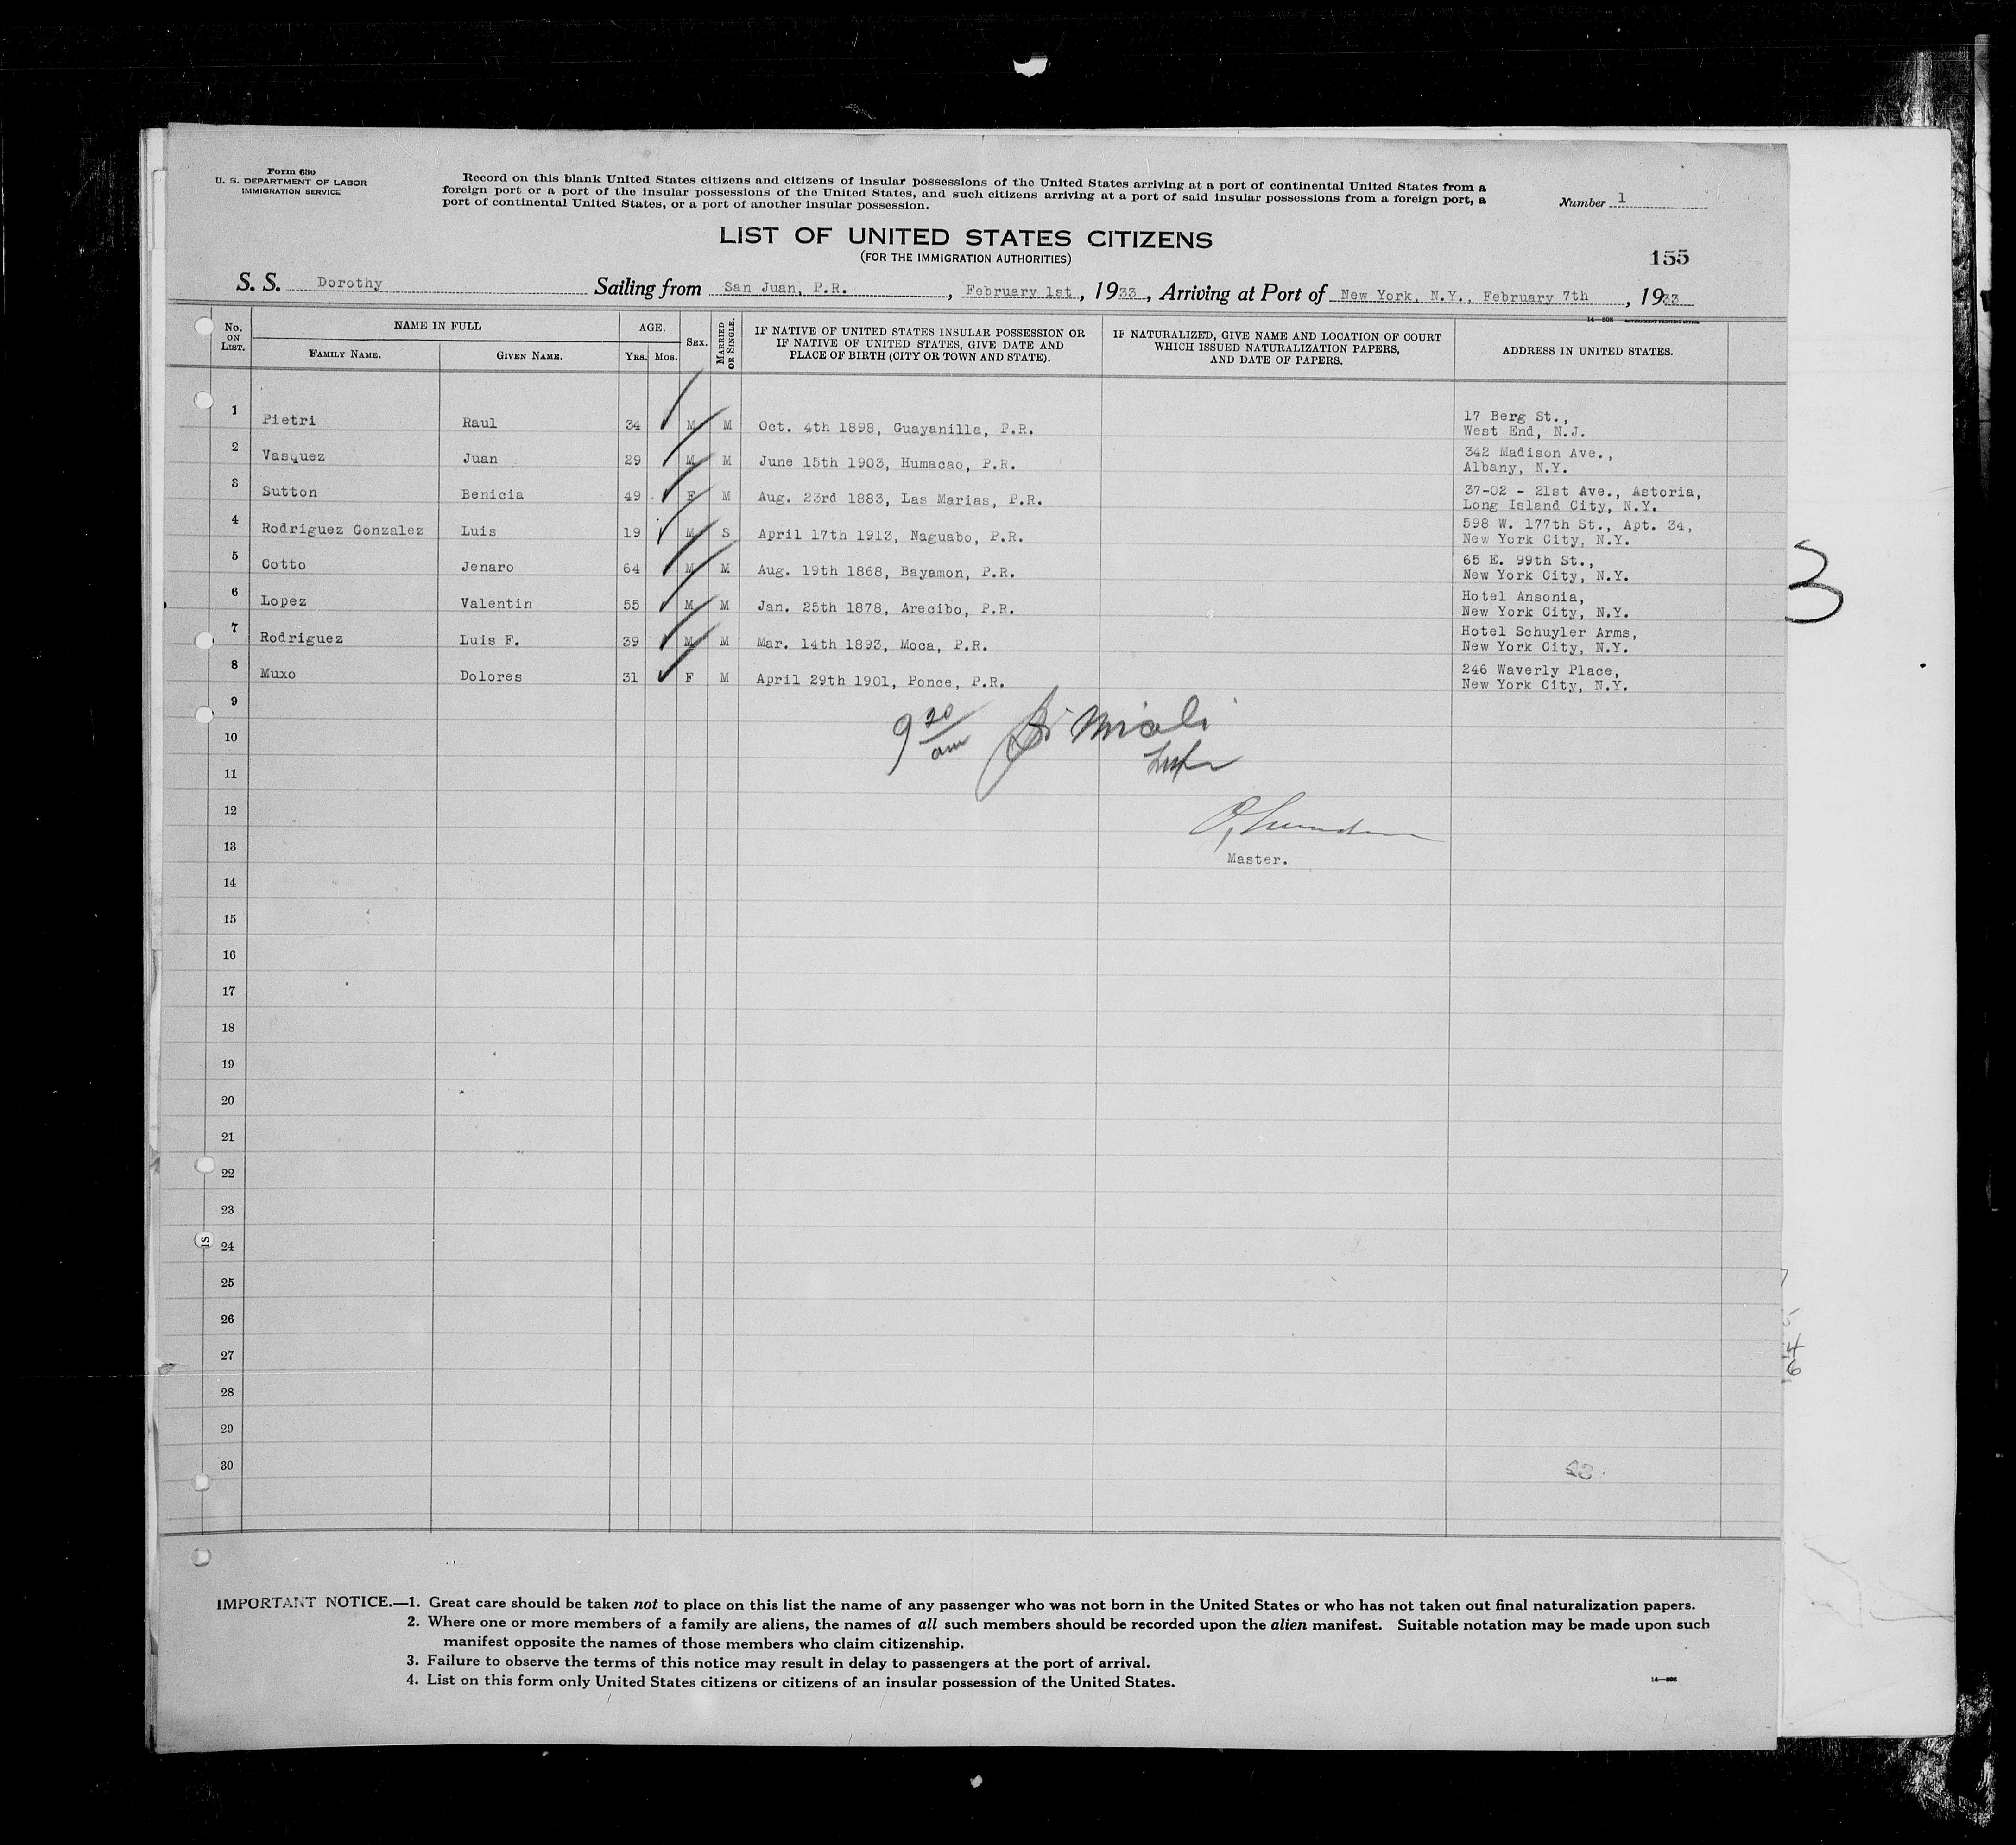 Form 630
U. S. DEPARTMENT OF LABOR
IMMIGRATION SERVICE
Record on this blank United States citizens and citizens of insular possessions of the United States arriving at a port of continental United States from a
foreign port or a port of the insular possessions of the United States, and such citizens arriving at a port of said insular possessions from a foreign port, a
port of continental United States, or a port of another insular possession.
Number 1
LIST OF UNITED STATES CITIZENS
(FOR THE IMMIGRATION AUTHORITIES)
155
S. S. Dorothy Sailing from San Juan, P.R., February 1st, 1933, Arriving at Port of New York, N.Y., February 7th, 1933
No. ON LIST. NAME IN FULL FAMILY NAME. GIVEN NAME. AGE. YRS. MOS. SEX. MARRIED OR SINGLE. IF NATIVE OF UNITED STATES INSULAR POSSESSION OR IF NATIVE OF UNITED STATES, GIVE DATE AND PLACE OF BIRTH (CITY OR TOWN AND STATE). IF NATURALIZED, GIVE NAME AND LOCATION OF COURT WHICH ISSUED NATURALIZATION PAPERS, AND DATE OF PAPERS. ADDRESS IN UNITED STATES.
1 Pietri Raul 34 M M Oct. 4th 1898, Guayanilla, P.R. 17 Berg St., West End, N.J.
2 Vasquez Juan 29 M M June 15th 1903, Humacao, P.R. 342 Madison Ave., Albany, N.Y.
3 Sutton Benicia 49 F M Aug. 23rd 1883, Las Marias, P.R. 37-02 - 21st Ave., Astoria, Long Island City, N.Y.
4 Rodriguez Gonzalez Luis 19 M S April 17th 1913, Naguabo, P.R. 598 W. 177th St., Apt. 34, New York City, N.Y.
5 Cotto Jenaro 64 M M Aug. 19th 1868, Bayamon, P.R. 65 E. 99th St., New York City, N.Y.
6 Lopez Valentin 55 M M Jan. 25th 1878, Arecibo, P.R. Hotel Ansonia, New York City, N.Y.
7 Rodriguez Luis F. 39 M M Mar. 14th 1893, Moca, P.R. Hotel Schuyler Arms, New York City, N.Y.
8 Muxo Dolores 31 F M April 29th 1901, Ponce, P.R. 246 Waverly Place, New York City, N.Y.
3
9
9 20 am
10
11
12
13
Master.
14
15
16
17
18
19
20
21
22
23
24
25
26
27
28
29
30
IMPORTANT NOTICE.—1. Great care should be taken not to place on this list the name of any passenger who was not born in the United States or who has not taken out final naturalization papers.
2. Where one or more members of a family are aliens, the names of all such members should be recorded upon the alien manifest. Suitable notation may be made upon such
manifest opposite the names of those members who claim citizenship.
3. Failure to observe the terms of this notice may result in delay to passengers at the port of arrival.
4. List on this form only United States citizens or citizens of an insular possession of the United States.